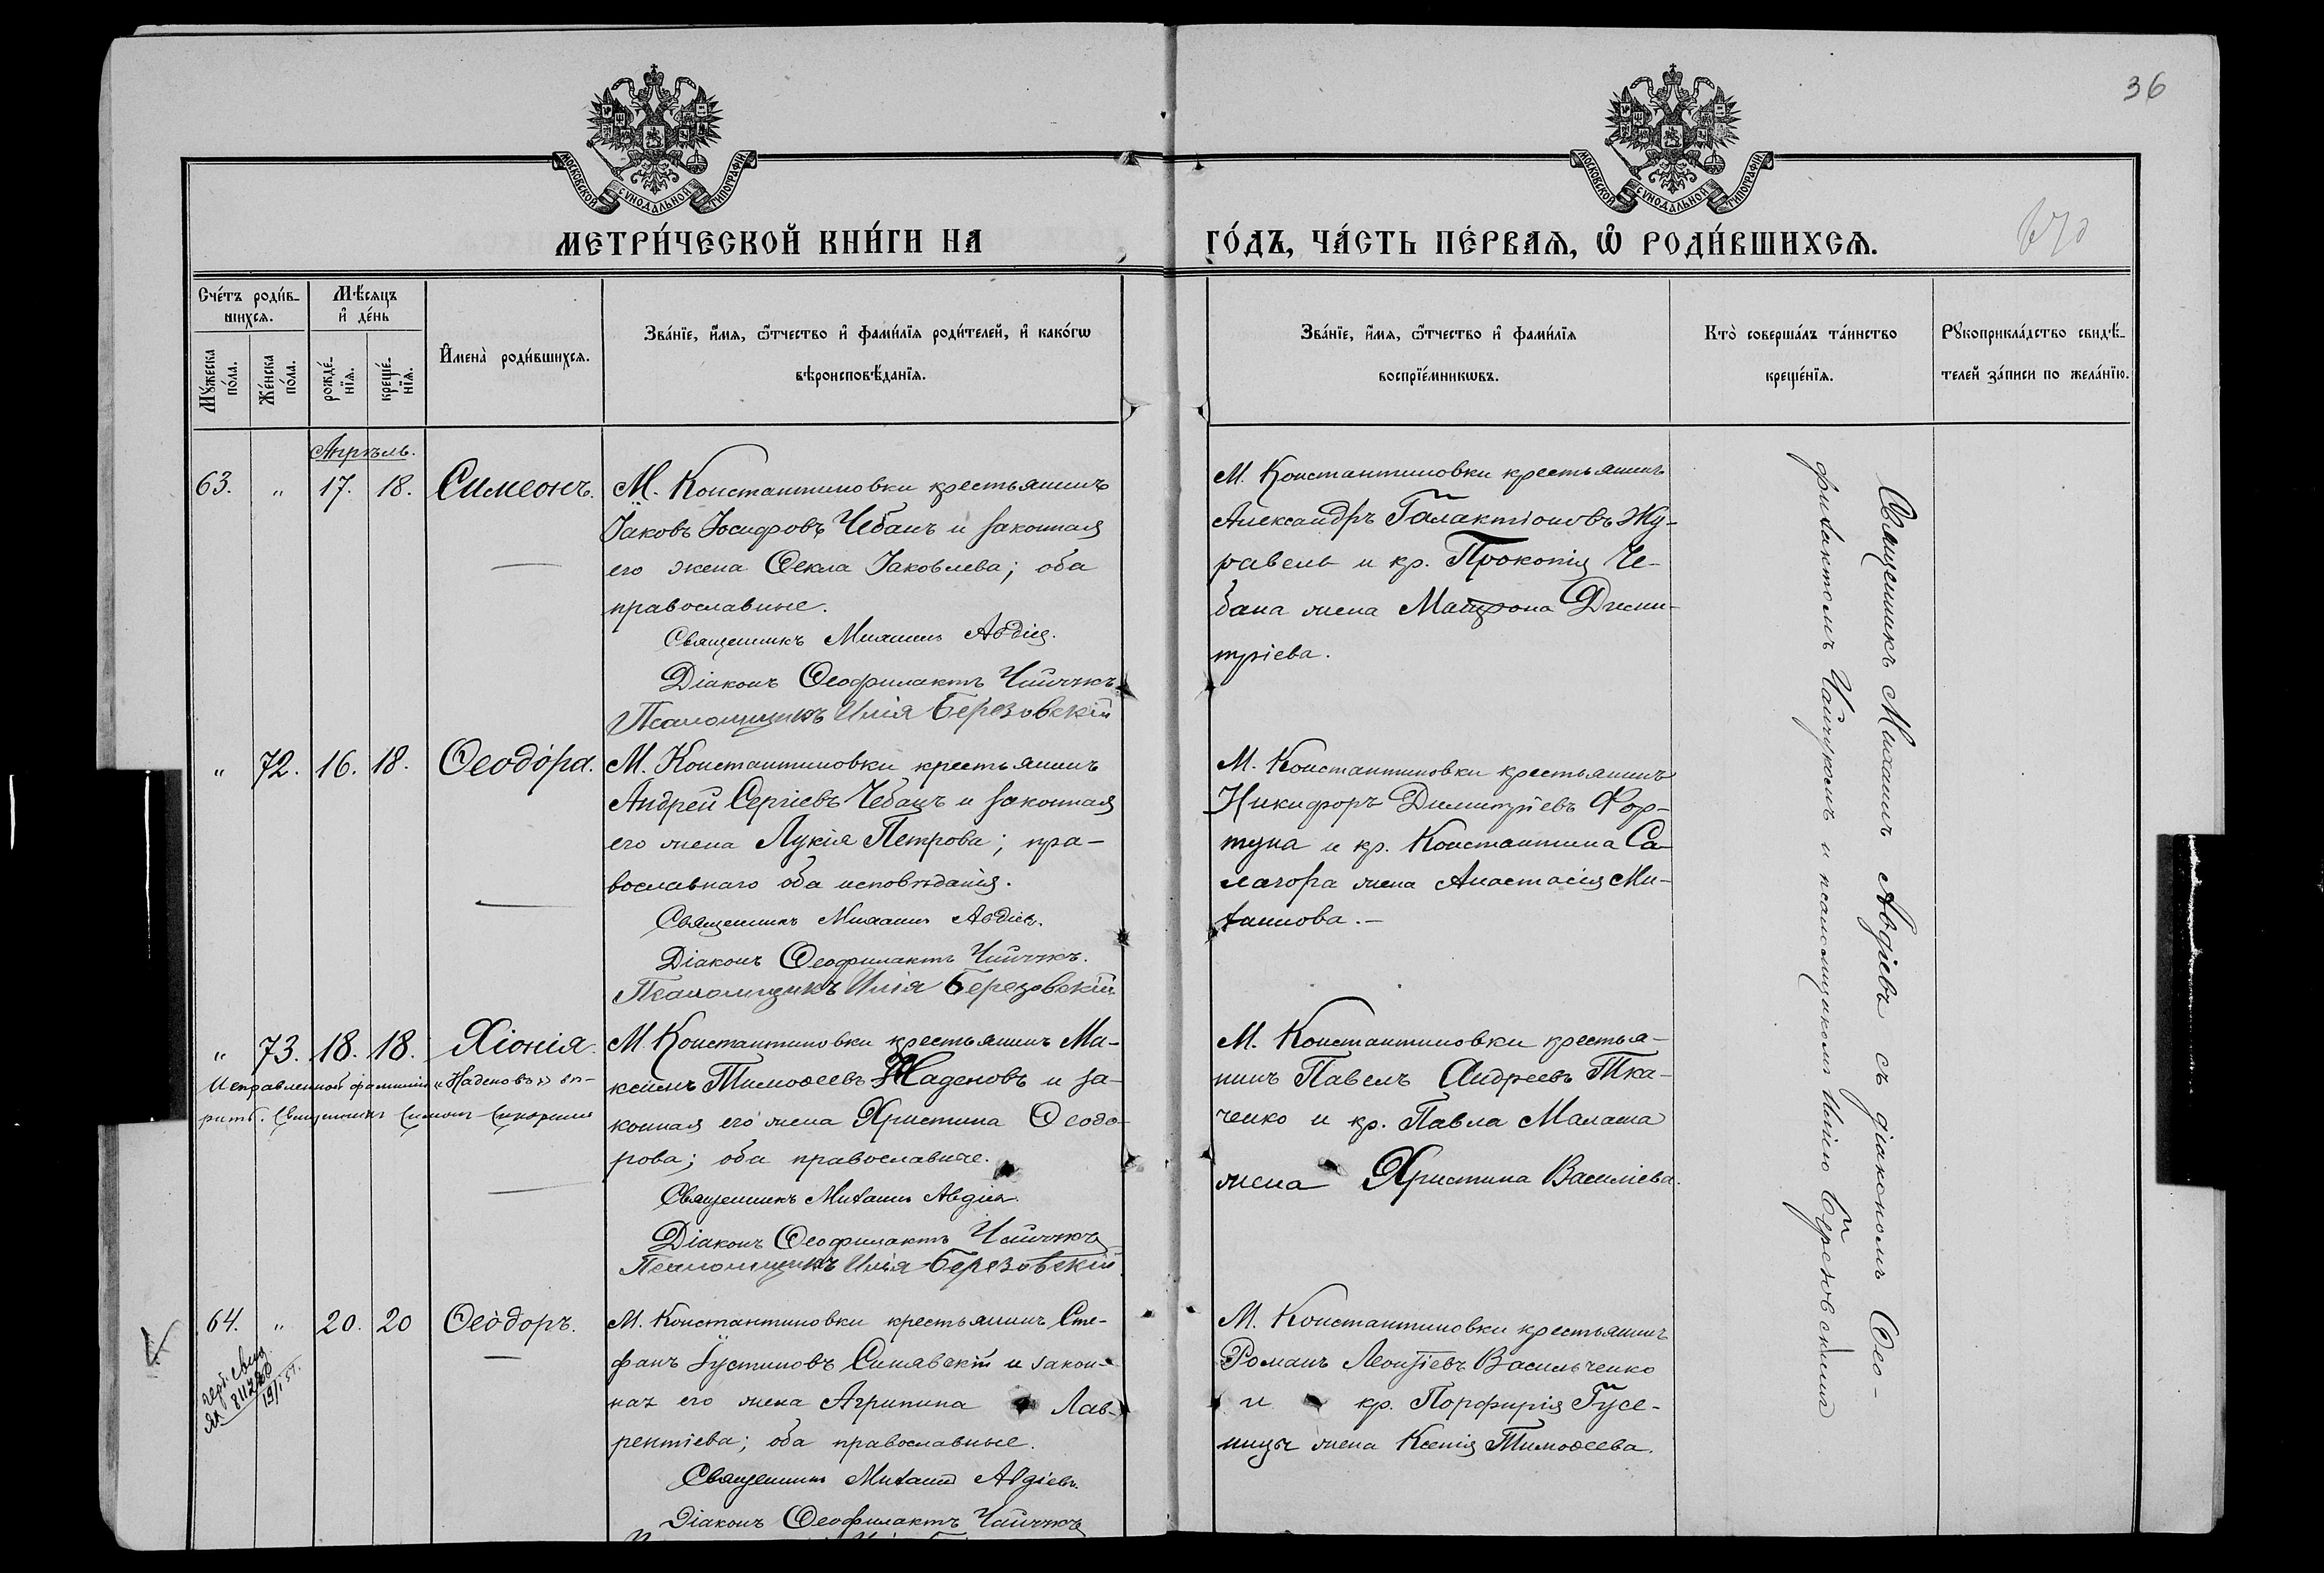 36
МОСКОВСКОЙ СѴНОДАЛЬНОЙ ТИПОГРАФІИ
МОСКОВСКОЙ СѴНОДАЛЬНОЙ ТИПОГРАФІИ
МЕТРИ́ЧЕСКОЙ КНИ́ГИ НА
ГО́ДЪ, ЧА́СТЬ ПЕ́РВАѦ, Ѽ РОДИ́ВШИХСѦ.
Сче́тъ роди́в-
шихсѧ.
Мꙋ́жеска
по́ла.
Же́нска
по́ла.
Мѣ́сѧцъ
и҆ де́нь
рожде́-
нїѧ.
креще́-
нїѧ.
И҆мена̀ роди́вшихсѧ.
Зва́нїе, и҆́мѧ, ѻ҆́тчество и҆ фами́лїѧ роди́телей, и҆ како́гѡ
вѣроисповѣ́данїѧ.
Зва́нїе, и҆́мѧ, ѻ҆́тчество и҆ фами́лїѧ
воспрїе́мникѡвъ.
Кто̀ соверша́лъ та́инство
креще́нїѧ.
Рꙋкоприкла́дство свидѣ́-
телей за́писи по жела́нїю.
Апрѣль.
63. " 17. 18. Симеонъ.
М. Константиновки крестьянинъ
Іаковъ Іосифовъ Чебанъ и законная
его жена Ѳекла Іаковлева; оба
православные.
Священникъ Михаилъ Авдіев.
Діаконъ Ѳеофилактъ Чайчукъ
Псаломщикъ Илія Березовскій
М. Константиновки крестьянинъ
Александръ Галактіоновъ Жу-
равель и кр. Прокопія Че-
бана жена Матрона Дими-
тріева.
" 72. 16. 18. Ѳеодо́ра.
М. Константиновки крестьянинъ
Андрей Сергіевъ Чебанъ и законная
его жена Лукія Петрова; пра-
вославнаго оба исповѣданія.
Священникъ Михаилъ Авдіев.
Діаконъ Ѳеофилактъ Чайчукъ.
Псаломщикъ Илія Березовскій
М. Константиновки крестьянинъ
Никифоръ Димитріевъ Фор-
туна и кр. Константина Са-
лагора жена Анастасія Ми-
хаилова.-
" 73. 18. 18. Хіонія.
Исправленной фамиліи "Наденовъ" вѣ-
рить. Священникъ Симонъ
М. Константиновки крестьянинъ Ма-
ксимъ Тимоѳеевъ Наденовъ и за-
конная его жена Христина Ѳеодо-
рова; оба православные.
Священникъ Михаилъ Авдіев.
Діаконъ Ѳеофилактъ Чайчукъ
Псаломщикъ Илія Березовскій
М. Константиновки крестья-
нинъ Павелъ Андреевъ Тка-
ченко и кр. Павла Малаша
жена Христина Василіева.
64. " 20. 20 Ѳео́доръ.
М. Константиновки крестьянинъ Сте-
фанъ Іустиновъ Синявскій и закон-
ная его жена Агрипина Лав-
рентіева; оба православные.
Священникъ Михаилъ Авдіевъ.
Діаконъ Ѳеофилактъ Чайчукъ
М. Константиновки крестьянинъ
Романъ Леонтіевъ Васильченко
и кр. Порфирія Гусе-
ницы жена Ксенія Тимоѳеева.
Священникъ Михаилъ Авдіевъ съ діакономъ Ѳео-
филактомъ Чайчукомъ и псаломщикомъ Иліею Березовскимъ